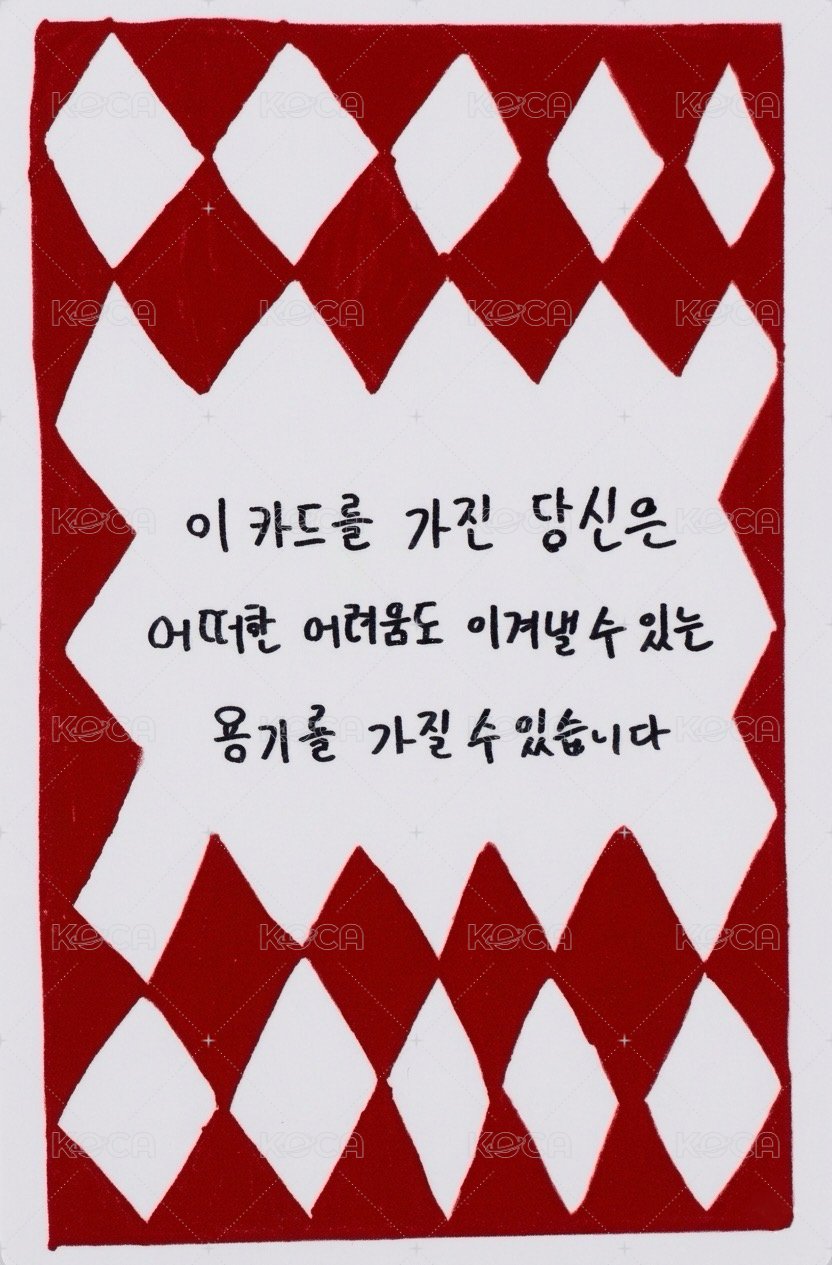 이 카드를 가진 당신은
어떠한 어려움도 이겨낼 수 있는
용기를 가질 수 있습니다
KOCA KOCA KOCA KOCA
KOCA KOCA KOCA KOCA
KOCA KOCA KOCA KOCA
KOCA KOCA KOCA KOCA
KOCA KOCA KOCA KOCA
KOCA KOCA KOCA KOCA